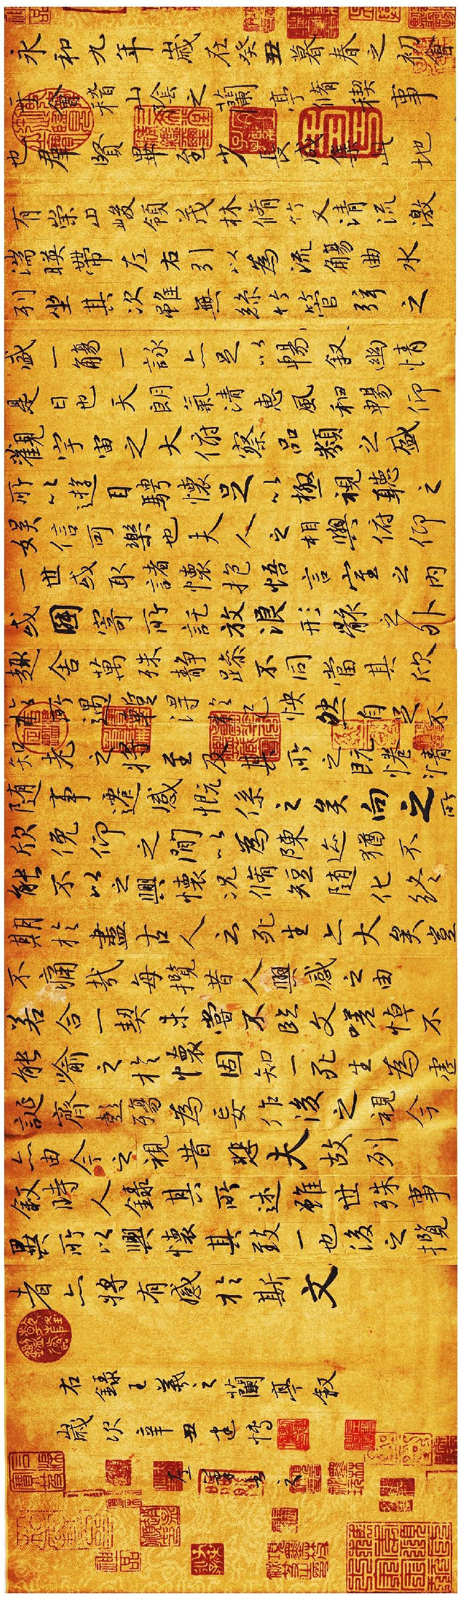 永和九年歲在癸丑暮春之初會
于會稽山陰之蘭亭脩稧事
也群賢畢至少長咸集此地
有崇山峻領茂林脩竹又清流激
湍暎帶左右引以為流觴曲水
列坐其次雖無絲竹管弦之
盛一觴一詠亦足以暢敘幽情
是日也天朗氣清惠風和暢仰
觀宇宙之大俯察品類之盛
所以遊目騁懷足以極視聽之
娛信可樂也夫人之相與俯仰
一世或取諸懷抱悟言一室之內
或因寄所託放浪形骸之外
趣舍萬殊靜躁不同當其欣
於所遇蹔得於己怏然自足不
知老之將至及其所之既惓情
隨事遷感慨係之矣向之所
欣俛仰之閒以為陳迹猶不
能不以之興懷況脩短隨化終
期於盡古人云死生亦大矣豈
不痛哉每攬昔人興感之由
若合一契未嘗不臨文嗟悼不
能喻之於懷固知一死生為虛
誕齊彭殤為妄作後之視今
亦由今之視昔悲夫故列
敘時人錄其所述雖世殊事
異所以興懷其致一也後之攬
者亦將有感於斯文
右錄王羲之蘭亭敘
歲次辛丑建博